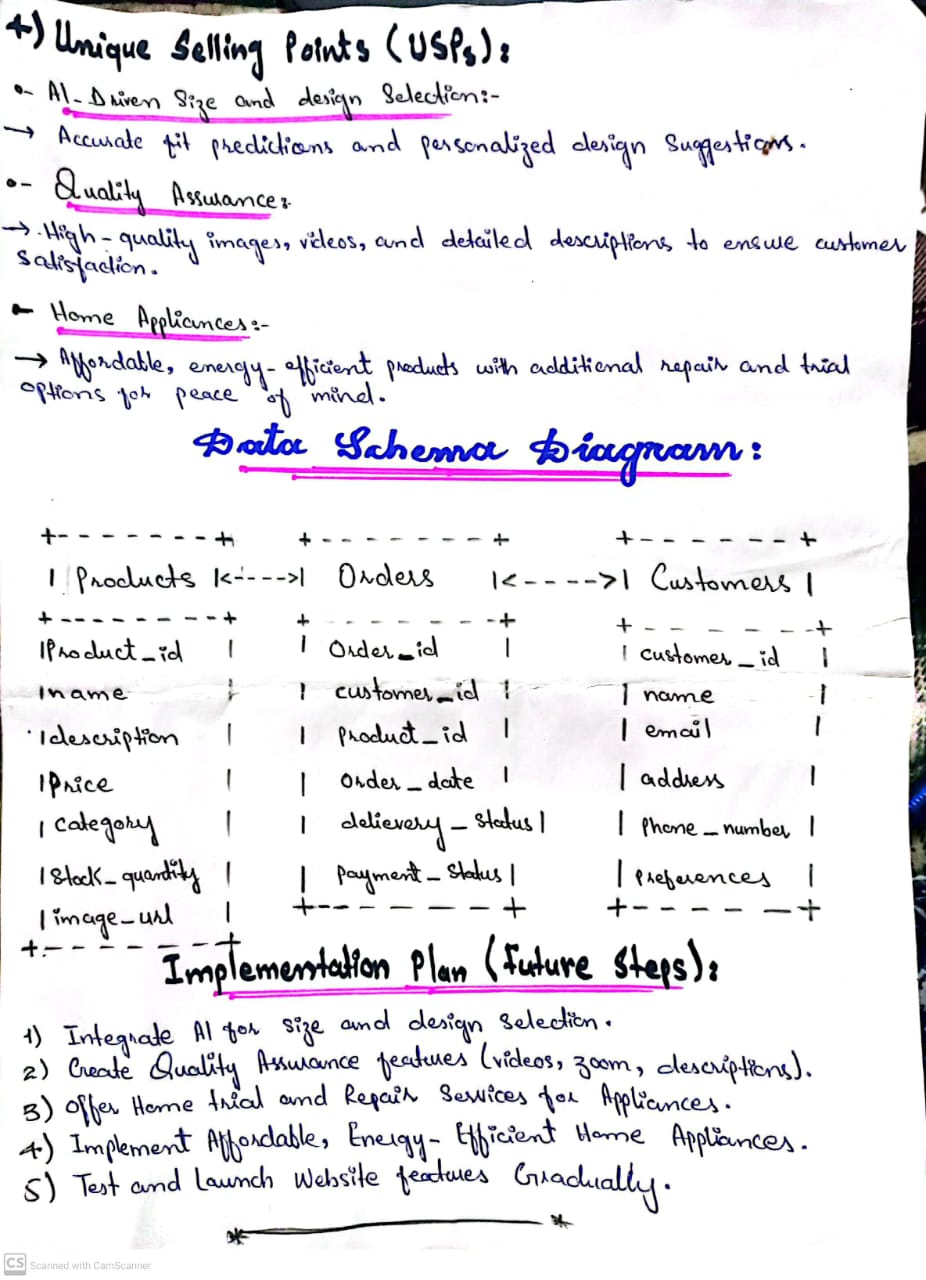 4) Unique Selling Points (USPs):
•- AI-Driven Size and design Selection:-
→ Accurate fit predictions and personalized design Suggestions.
•- Quality Assurance:-
→ High-quality images, videos, and detailed descriptions to ensure customer
Satisfaction.
•- Home Appliances:-
→ Affordable, energy-efficient products with additional repair and trial
options for peace of mind.
Data Schema Diagram:
+- - - - - - -+ +- - - - - - - -+ +- - - - - - -+
| Products |<---->| Orders |<---->| Customers |
+- - - - - - -+ +- - - - - - - -+ +- - - - - - -+
|Product_id | | Order_id | | customer_id |
|name | | customer_id | | name |
|description | | Product_id | | email |
|Price | | Order_date | | address |
| Category | | delievery_status | | Phone_number |
| Stock_quantity | | Payment_status | | Preferences |
| image_url | +- - - - - - - -+ +- - - - - - -+
+- - - - - - -+
Implementation Plan (Future Steps):
1) Integrate AI for size and design Selection.
2) Create Quality Assurance features (videos, zoom, descriptions).
3) Offer Home trial and Repair Services for Appliances.
4) Implement Affordable, Energy-Efficient Home Appliances.
5) Test and Launch Website features Gradually.
CS Scanned with CamScanner